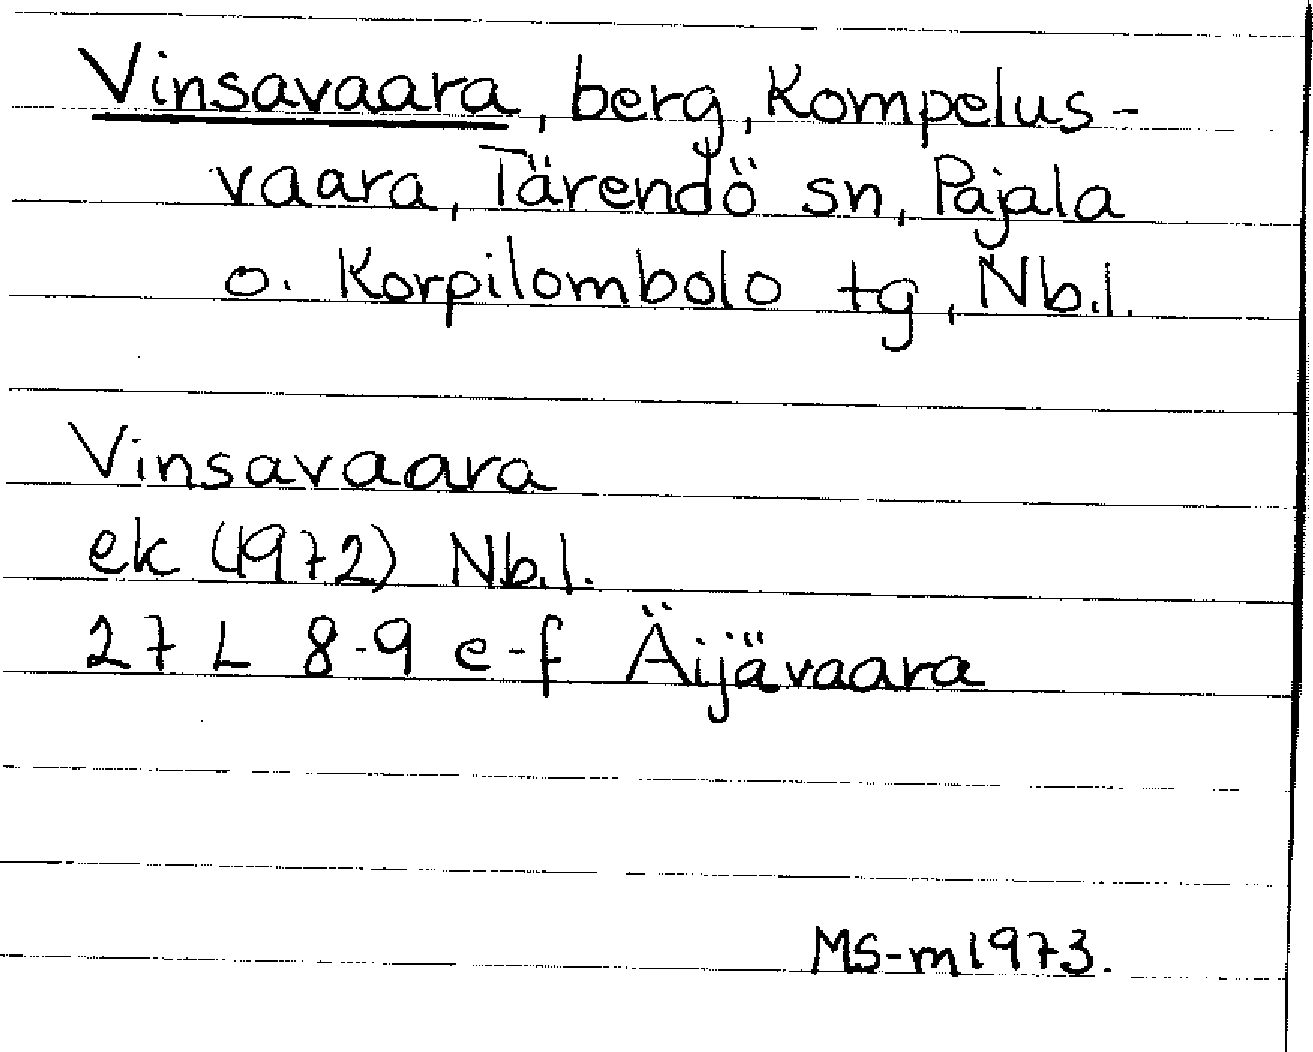 Vinsavaara, berg, Kompelus-
vaara, Tärendö sn, Pajala
o. Korpilombolo tg, Nb.l.
Vinsavaara
ek (1972) Nb.l.
27 L 8-9 e-f Äijävaara
MS-m1973.